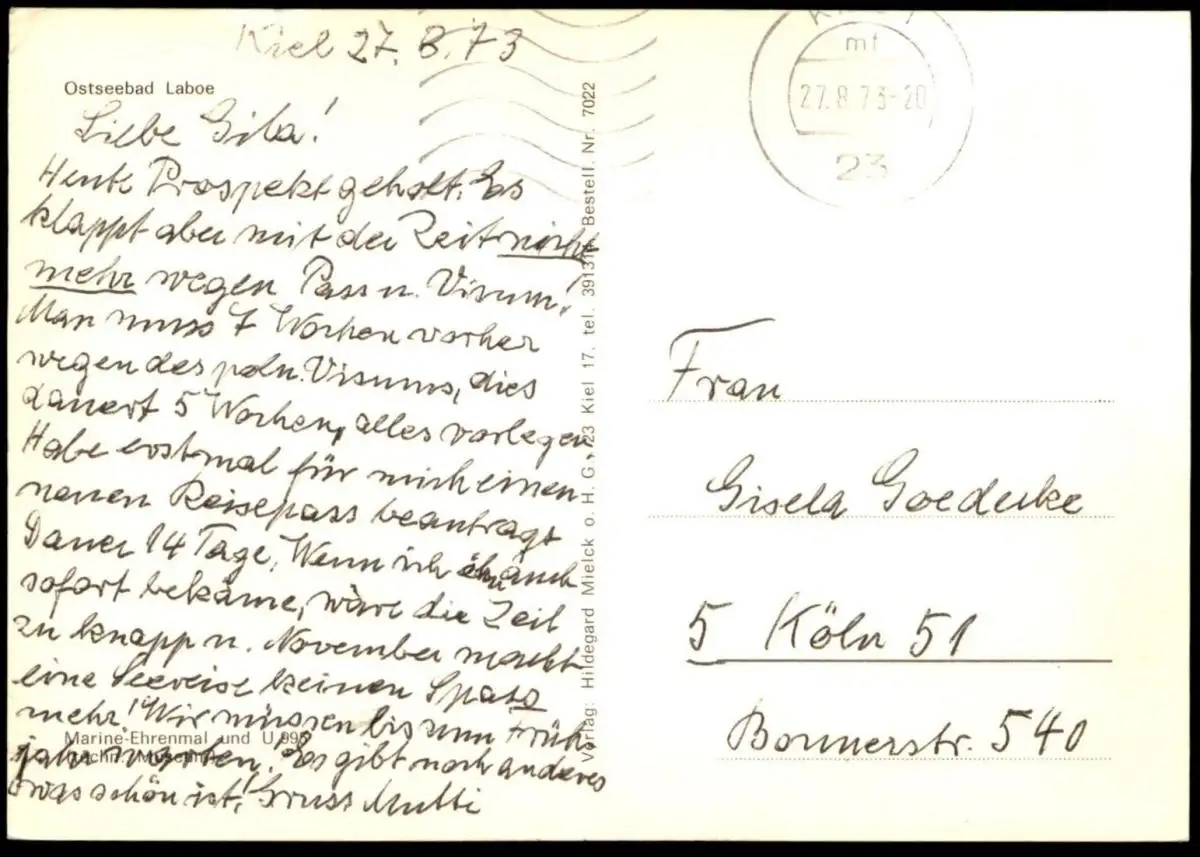 Kiel 27. 8. 73
Ostseebad Laboe
Liebe Gila!
Heute Prospekt geholt. Es
klappt aber mit der Zeit nicht
mehr wegen Pass u. Visum!
Man muss 7 Wochen vorher
wegen des poln. Visums, dies
dauert 5 Wochen, alles vorlegen
Habe erstmal für mich einen
neuen Reisepass beantragt
Dauer 14 Tage, Wenn ich ihn auch
sofort bekäme, wäre die Zeit
zu knapp u. November macht
eine Seereise keinen Spass
mehr! Wir müssen bis zum Früh-
jahr warten! Es gibt noch anderes
was schön ist! Gruss Mutti
Marine-Ehrenmal und U 995
Verlag: Hildegard Mielck o. H. G., 23 Kiel 17, tel. 39131 Bestell. Nr. 7022
mf
27.8.73-20
23
Frau
Gisela Goedecke
5 Köln 51
Bonnerstr. 540